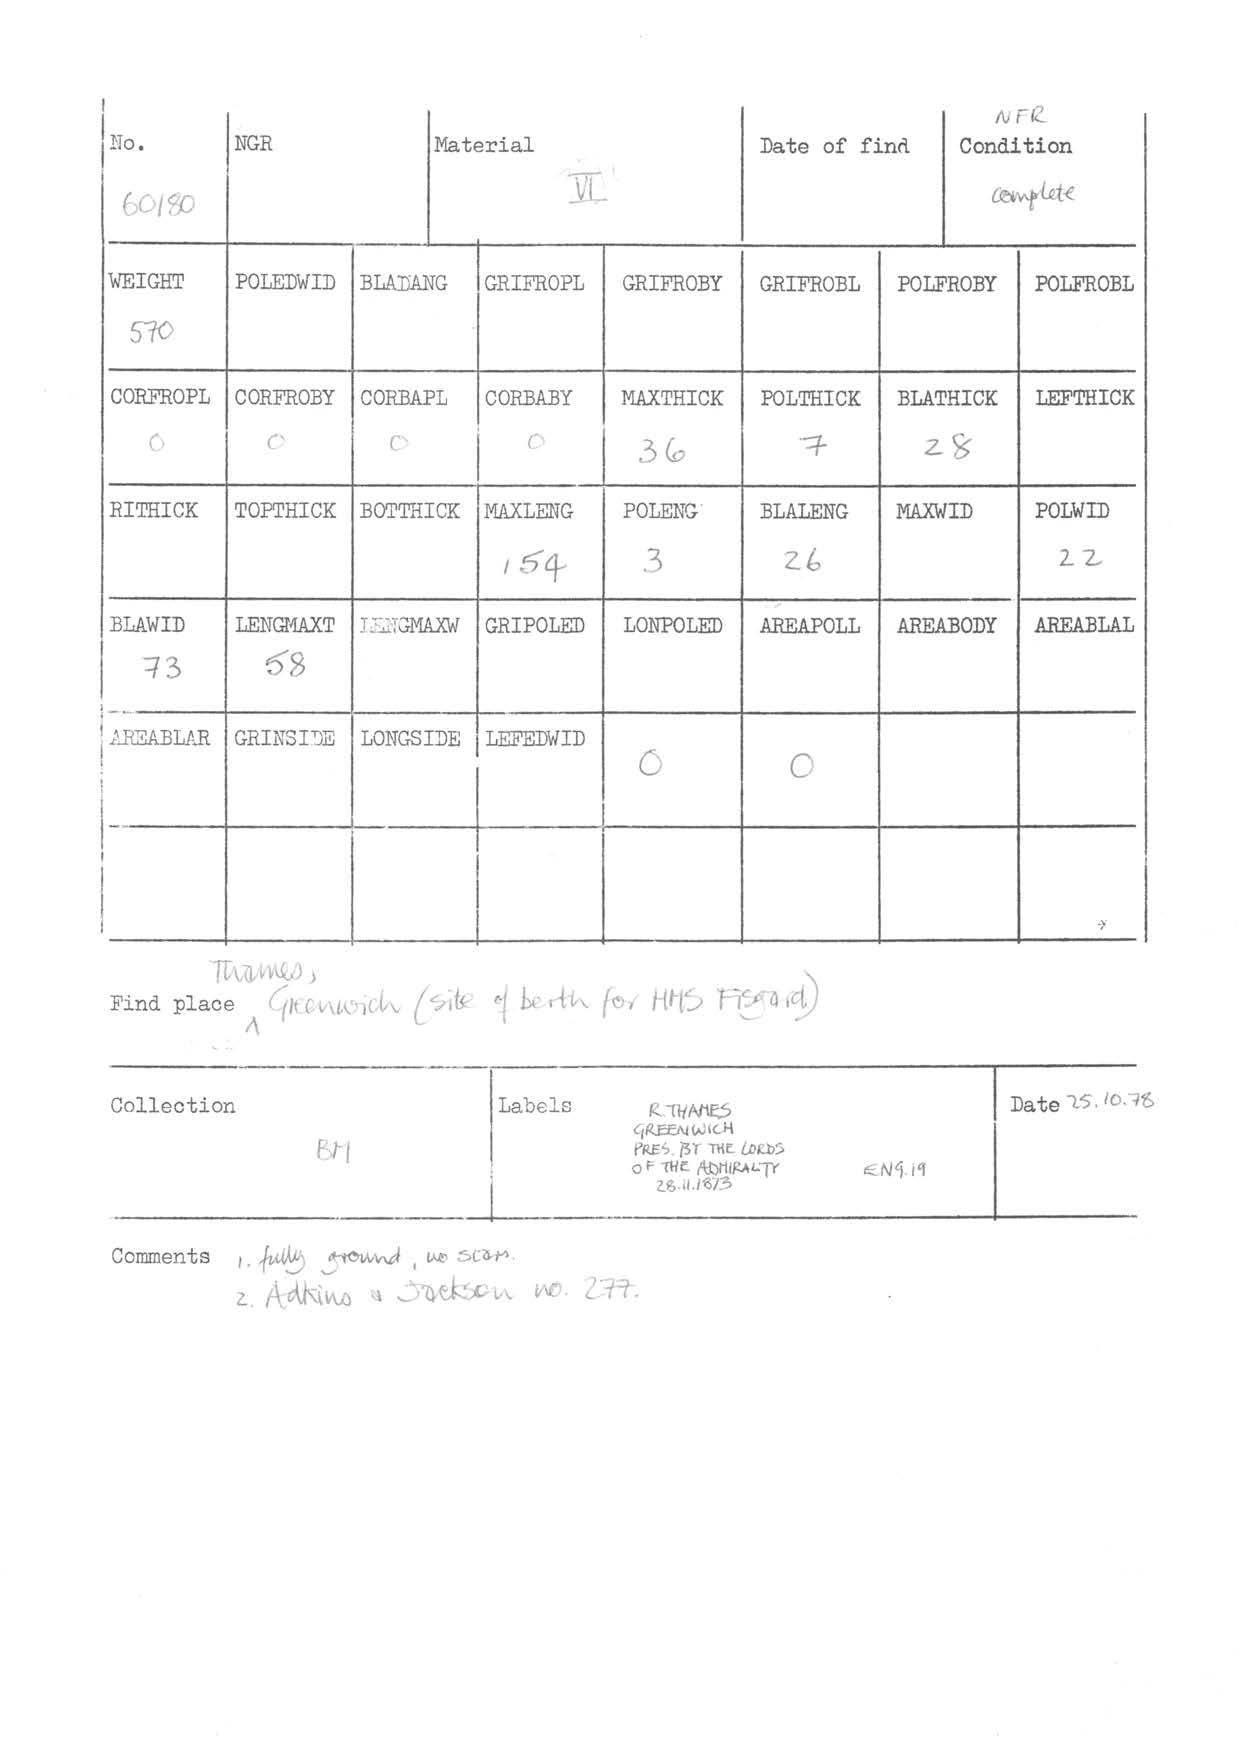 NFR
No. NGR Material Date of find Condition
60/80 VI complete
WEIGHT POLEDWID BLADANG GRIFROPL GRIFROBY GRIFROBL POLFROBY POLFROBL
570
CORFROPL CORFROBY CORBAPL CORBABY MAXTHICK POLTHICK BLATHICK LEFTHICK
0 0 0 0 36 7 28
RITHICK TOPTHICK BOTTHICK MAXLENG POLENG BLALENG MAXWID POLWID
154 3 26 22
BLAWID LENGMAXT LENGMAXW GRIPOLED LONPOLED AREAPOLL AREABODY AREABLAL
73 58
AREABLAR GRINSIDE LONGSIDE LEFEDWID
0 0
Thames,
Find place Greenwich (site of berth for HMS Fisgard)
Collection Labels Date 25.10.78
BM
R. THAMES
GREENWICH
PRES. BY THE LORDS
OF THE ADMIRALTY ENG.19
28.11.1873
Comments 1. fully ground, no scars.
2. Adkins & Jackson no. 277.